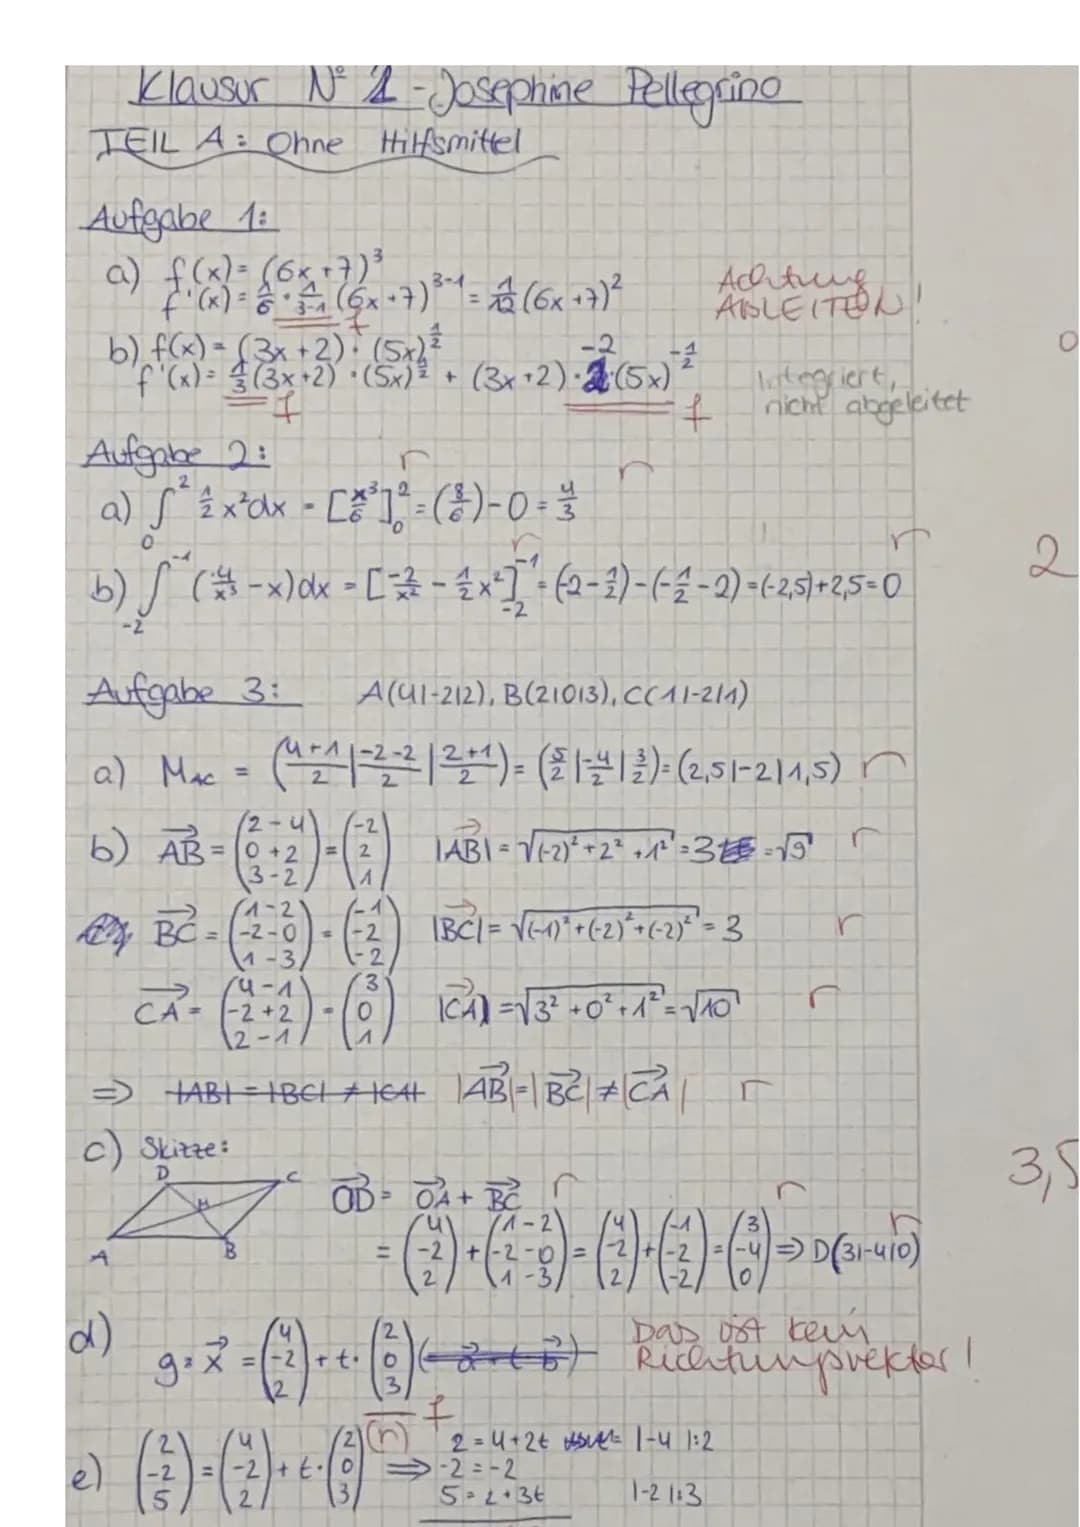 Klausur Nº 1 - Josephine Pellegrino
TEIL A: Ohne Hilfsmittel
Aufgabe 1:
a) f(x) = (6x+7)³
f'(x) = 1/6 · 1/(3-1) (6x+7)³⁻¹ = 1/12 (6x+7)² f
Achtung
ABLEITEN!
b) f(x) = (3x+2) · (5x)^(1/2)
f'(x) = 1/3 (3x+2) · (5x)^(1/2) + (3x+2) · -2 (5x)^(-1/2)
f f
Integriert,
nicht abgeleitet
0
Aufgabe 2:
r r
a) ∫₀² 1/2 x² dx = [x³/6]₀² = (8/6) - 0 = 4/3
r r
b) ∫₋₂⁻¹ (4/x³ - x) dx = [-2/x² - 1/2 x²]₋₂⁻¹ = (-2 - 1/2) - (-1/2 - 2) = (-2,5) + 2,5 = 0
2
Aufgabe 3: A(4|-2|2), B(2|0|3), C(1|-2|1)
a) M_AC = ((4+1)/2 | (-2-2)/2 | (2+1)/2) = (5/2 | -4/2 | 3/2) = (2,5|-2|1,5) r
b) AB→ = (2-4, 0+2, 3-2) = (-2, 2, 1) |AB→| = √((-2)² + 2² + 1²) = 3 = √9 r
BC→ = (1-2, -2-0, 1-3) = (-1, -2, -2) |BC→| = √((-1)² + (-2)² + (-2)²) = 3 r
CA→ = (4-1, -2+2, 2-1) = (3, 0, 1) |CA→| = √(3² + 0² + 1²) = √10 r
⇒ |AB| = |BC| ≠ |CA| |AB→| = |BC→| ≠ |CA→| r
c) Skizze:
D C
M
A B
OD→ = OA→ + BC→ r r
= (4, -2, 2) + (1-2, -2-0, 1-3) = (4, -2, 2) + (-1, -2, -2) = (3, -4, 0) ⇒ D(3|-4|0) r
3,5
d) g: x→ = (4, -2, 2) + t · (2, 0, 3)
f
Das ist kein
Richtungsvektor!
(r)
e) (2, -2, 5) = (4, -2, 2) + t · (2, 0, 3) ⇒ 2 = 4+2t |-4 |:2
-2 = -2
5 = 2+3t |-2 |:3